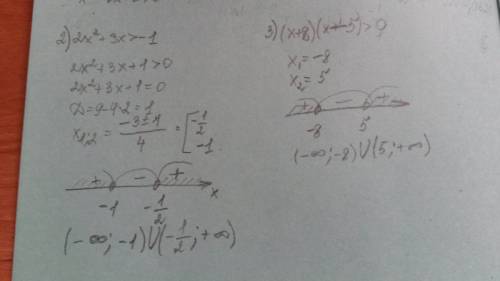 2) 2x²+3x>-1
2x²+3x+1>0
2x²+3x+1=0
D=9-4·2=1
x₁,₂ = (-3±1)/4 = [-1/2
-1
+ - +
-1 -1/2 x
(-∞;-1)∪(-1/2;+∞)
3) (x+8)(x-5)>0
x₁=-8
x₂=5
+ - +
-8 5
(-∞;-8)∪(5;+∞)